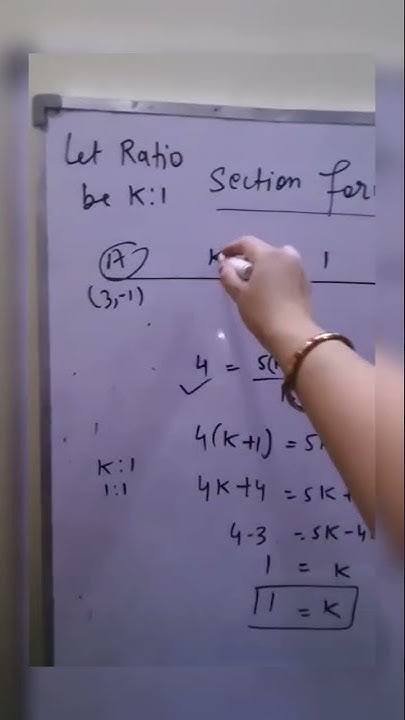 Let Ratio
be K:1
Section For
A K 1
(3,-1)
4 = 5(K
4(K+1) = 5K
K:1
1:1
4K+4 = 5K+
4-3 = 5K-4
1 = K
1 = K